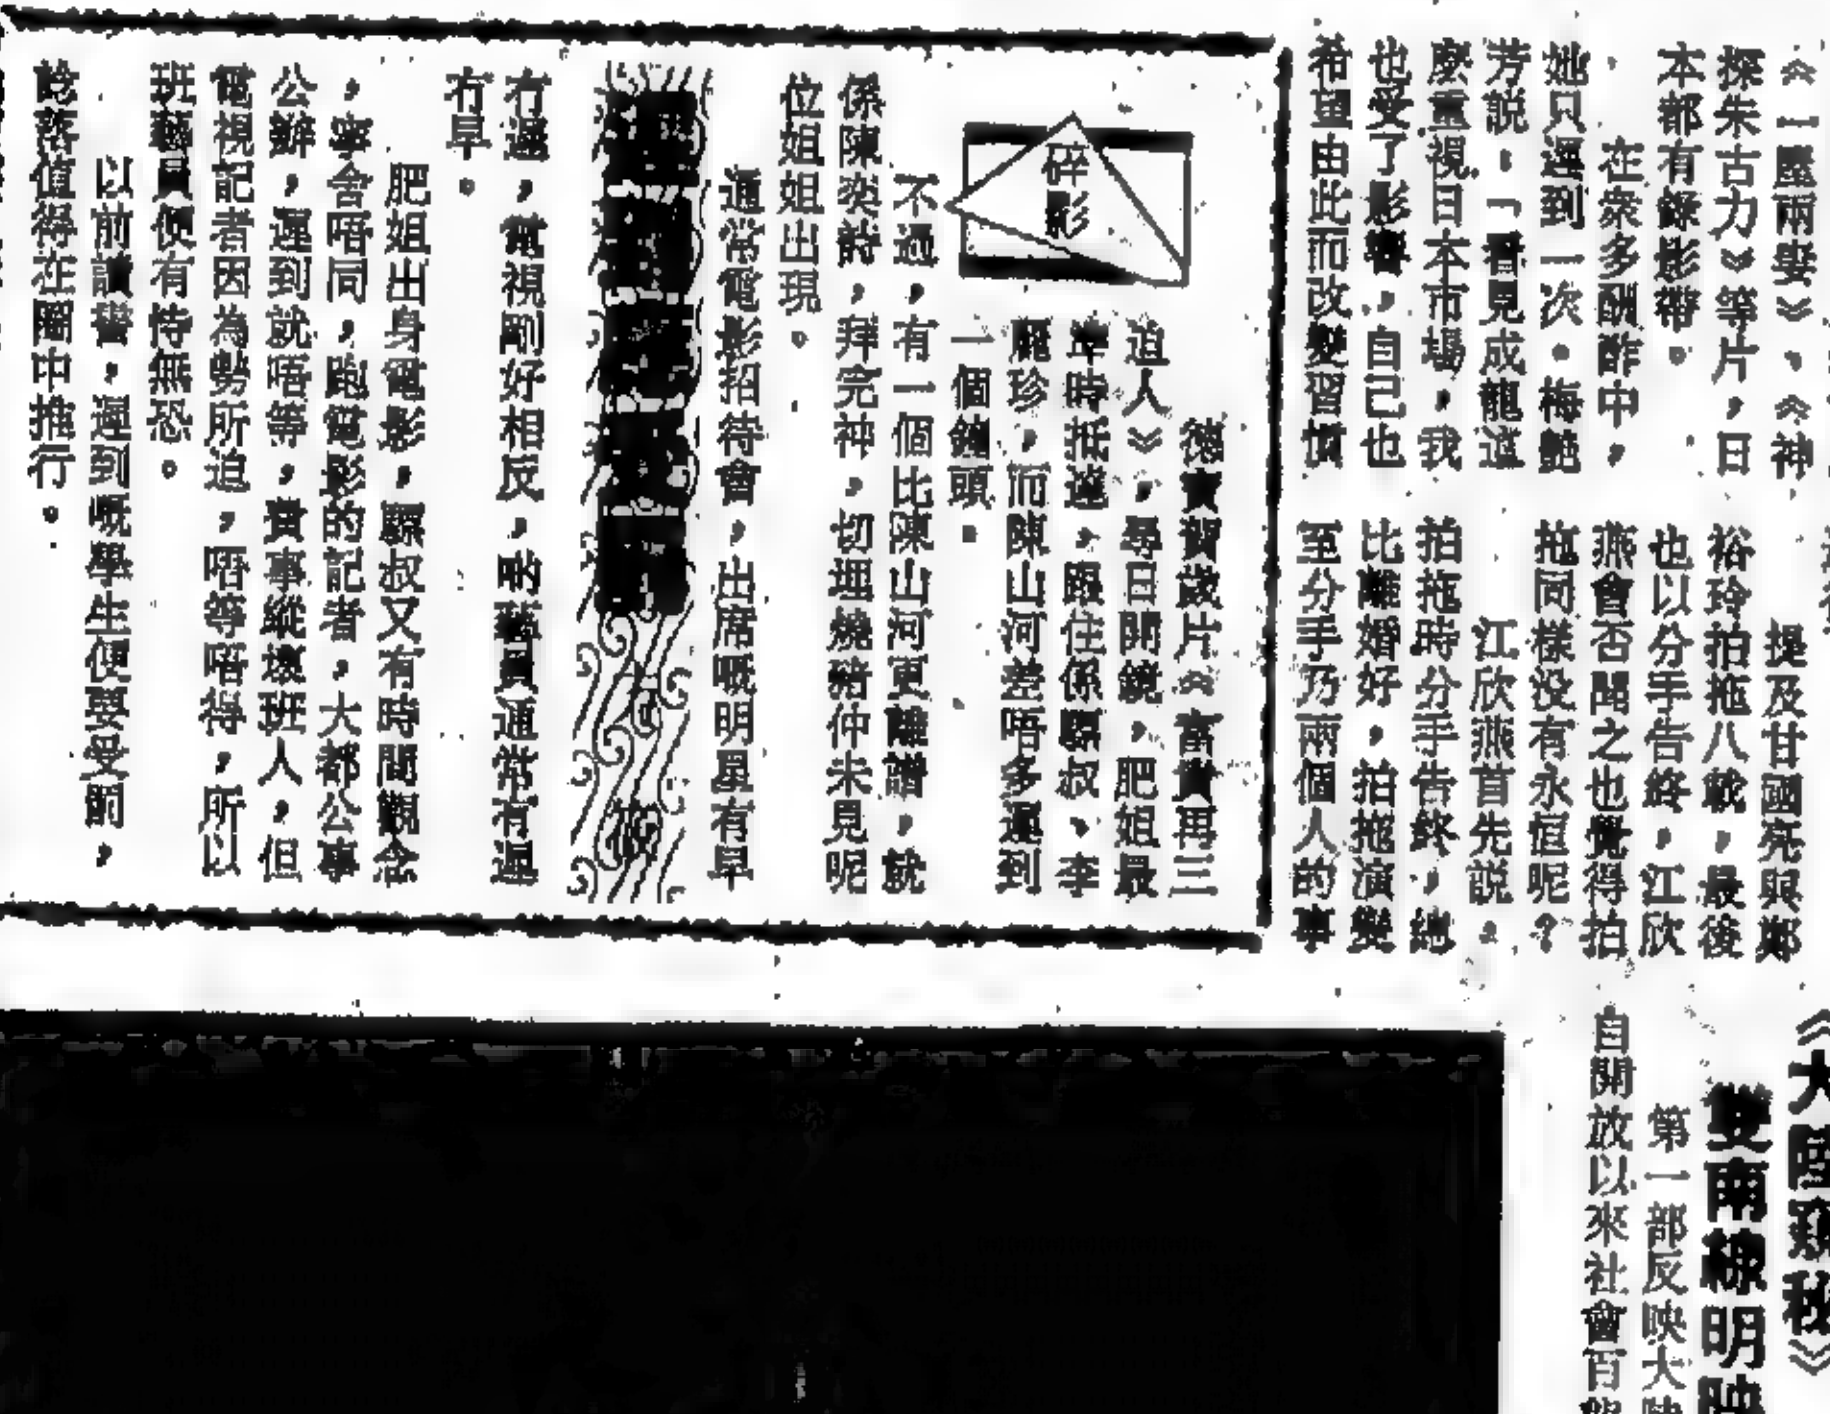 《一屋兩妻》、《神
探朱古力》等片，日
本都有錄影帶。
在衆多酬酢中，
她只遲到一次。梅艷
芳説：「看見成龍這
麽重視日本市場，我
也受了影響，自己也
希望由此而改變習慣
提及甘國亮與鄭
裕玲拍拖八載，最後
也以分手告終，江欣
燕會否聞之也覺得拍
拖同樣没有永恒呢？
江欣燕首先説。
拍拖時分手告終，總
比離婚好，拍拖演變
至分手乃兩個人的事
《大陸窺秘》
明映
第一部反映大陸
自開放以來社會百態
碎影
德寶賀歲片《富貴再三
迫人》，尋日開鏡，肥姐最
準時抵達，跟住係驃叔、李
麗珍，而陳山河差唔多遲到
一個鐘頭。
不過，有一個比陳山河更離譜，就
係陳奕詩，拜完神，切埋燒豬仲未見呢
位姐姐出現。
通常電影招待會，出席嘅明星有早
冇遲，電視剛好相反，啲藝員通常有遲
冇早。
肥姐出身電影，驃叔又有時間觀念
，寧舍唔同，跑電影的記者，大都公事
公辦，遲到就唔等，費事縱壞班人，但
電視記者因為勢所迫，唔等唔得，所以
班藝員便有恃無恐。
以前讀書，遲到嘅學生便要受罰，
諗落值得在圈中推行。